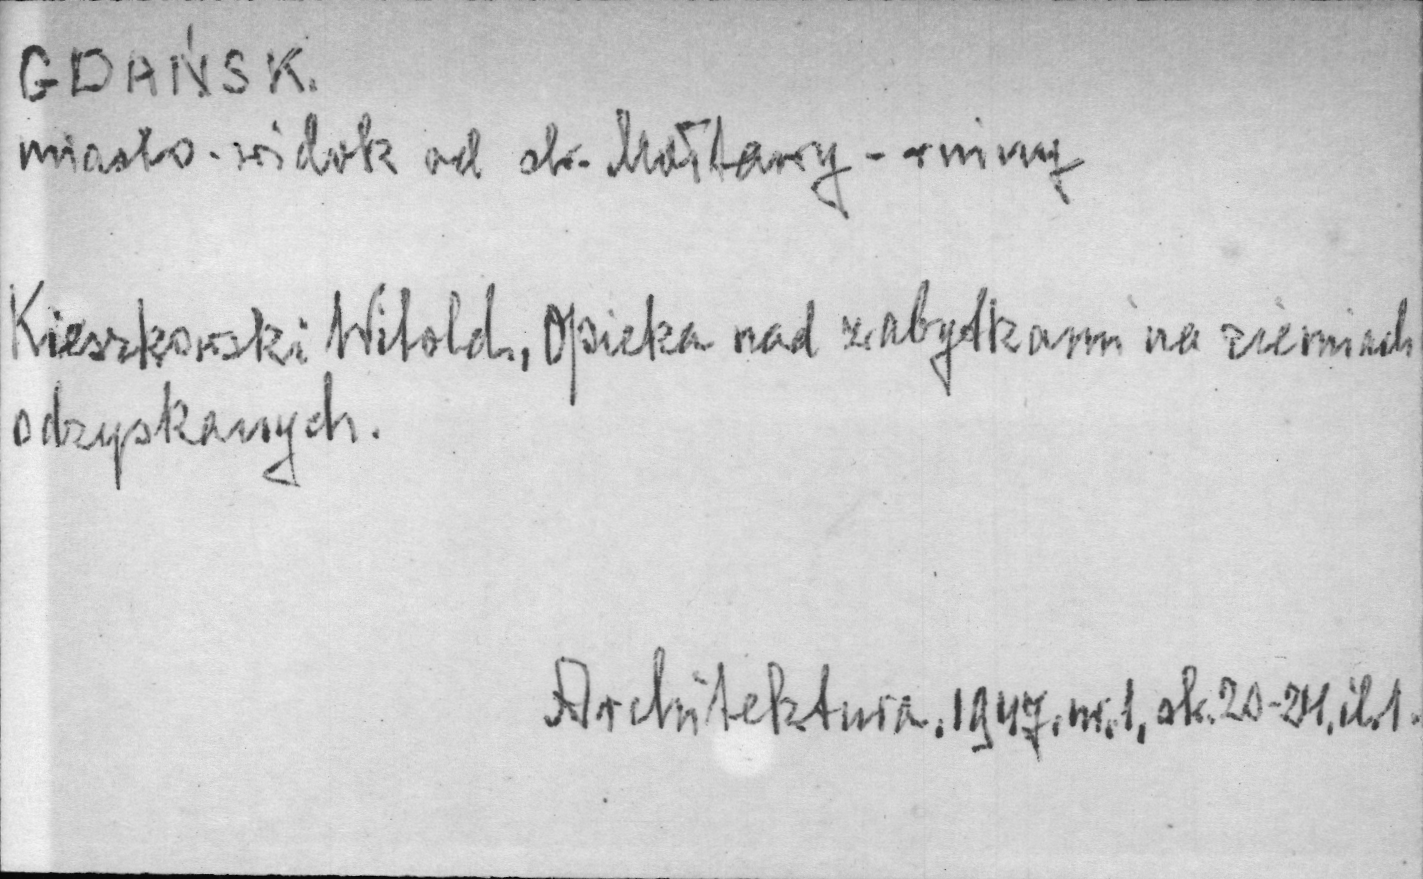 GDAŃSK.
miasto - widok od str. Mołtawy - ruiny
Kieszkowski Witold, Opieka nad zabytkami na ziemiach
odzyskanych.
Architektura, 1947, nr. 1, sk. 20-24, il. 1.